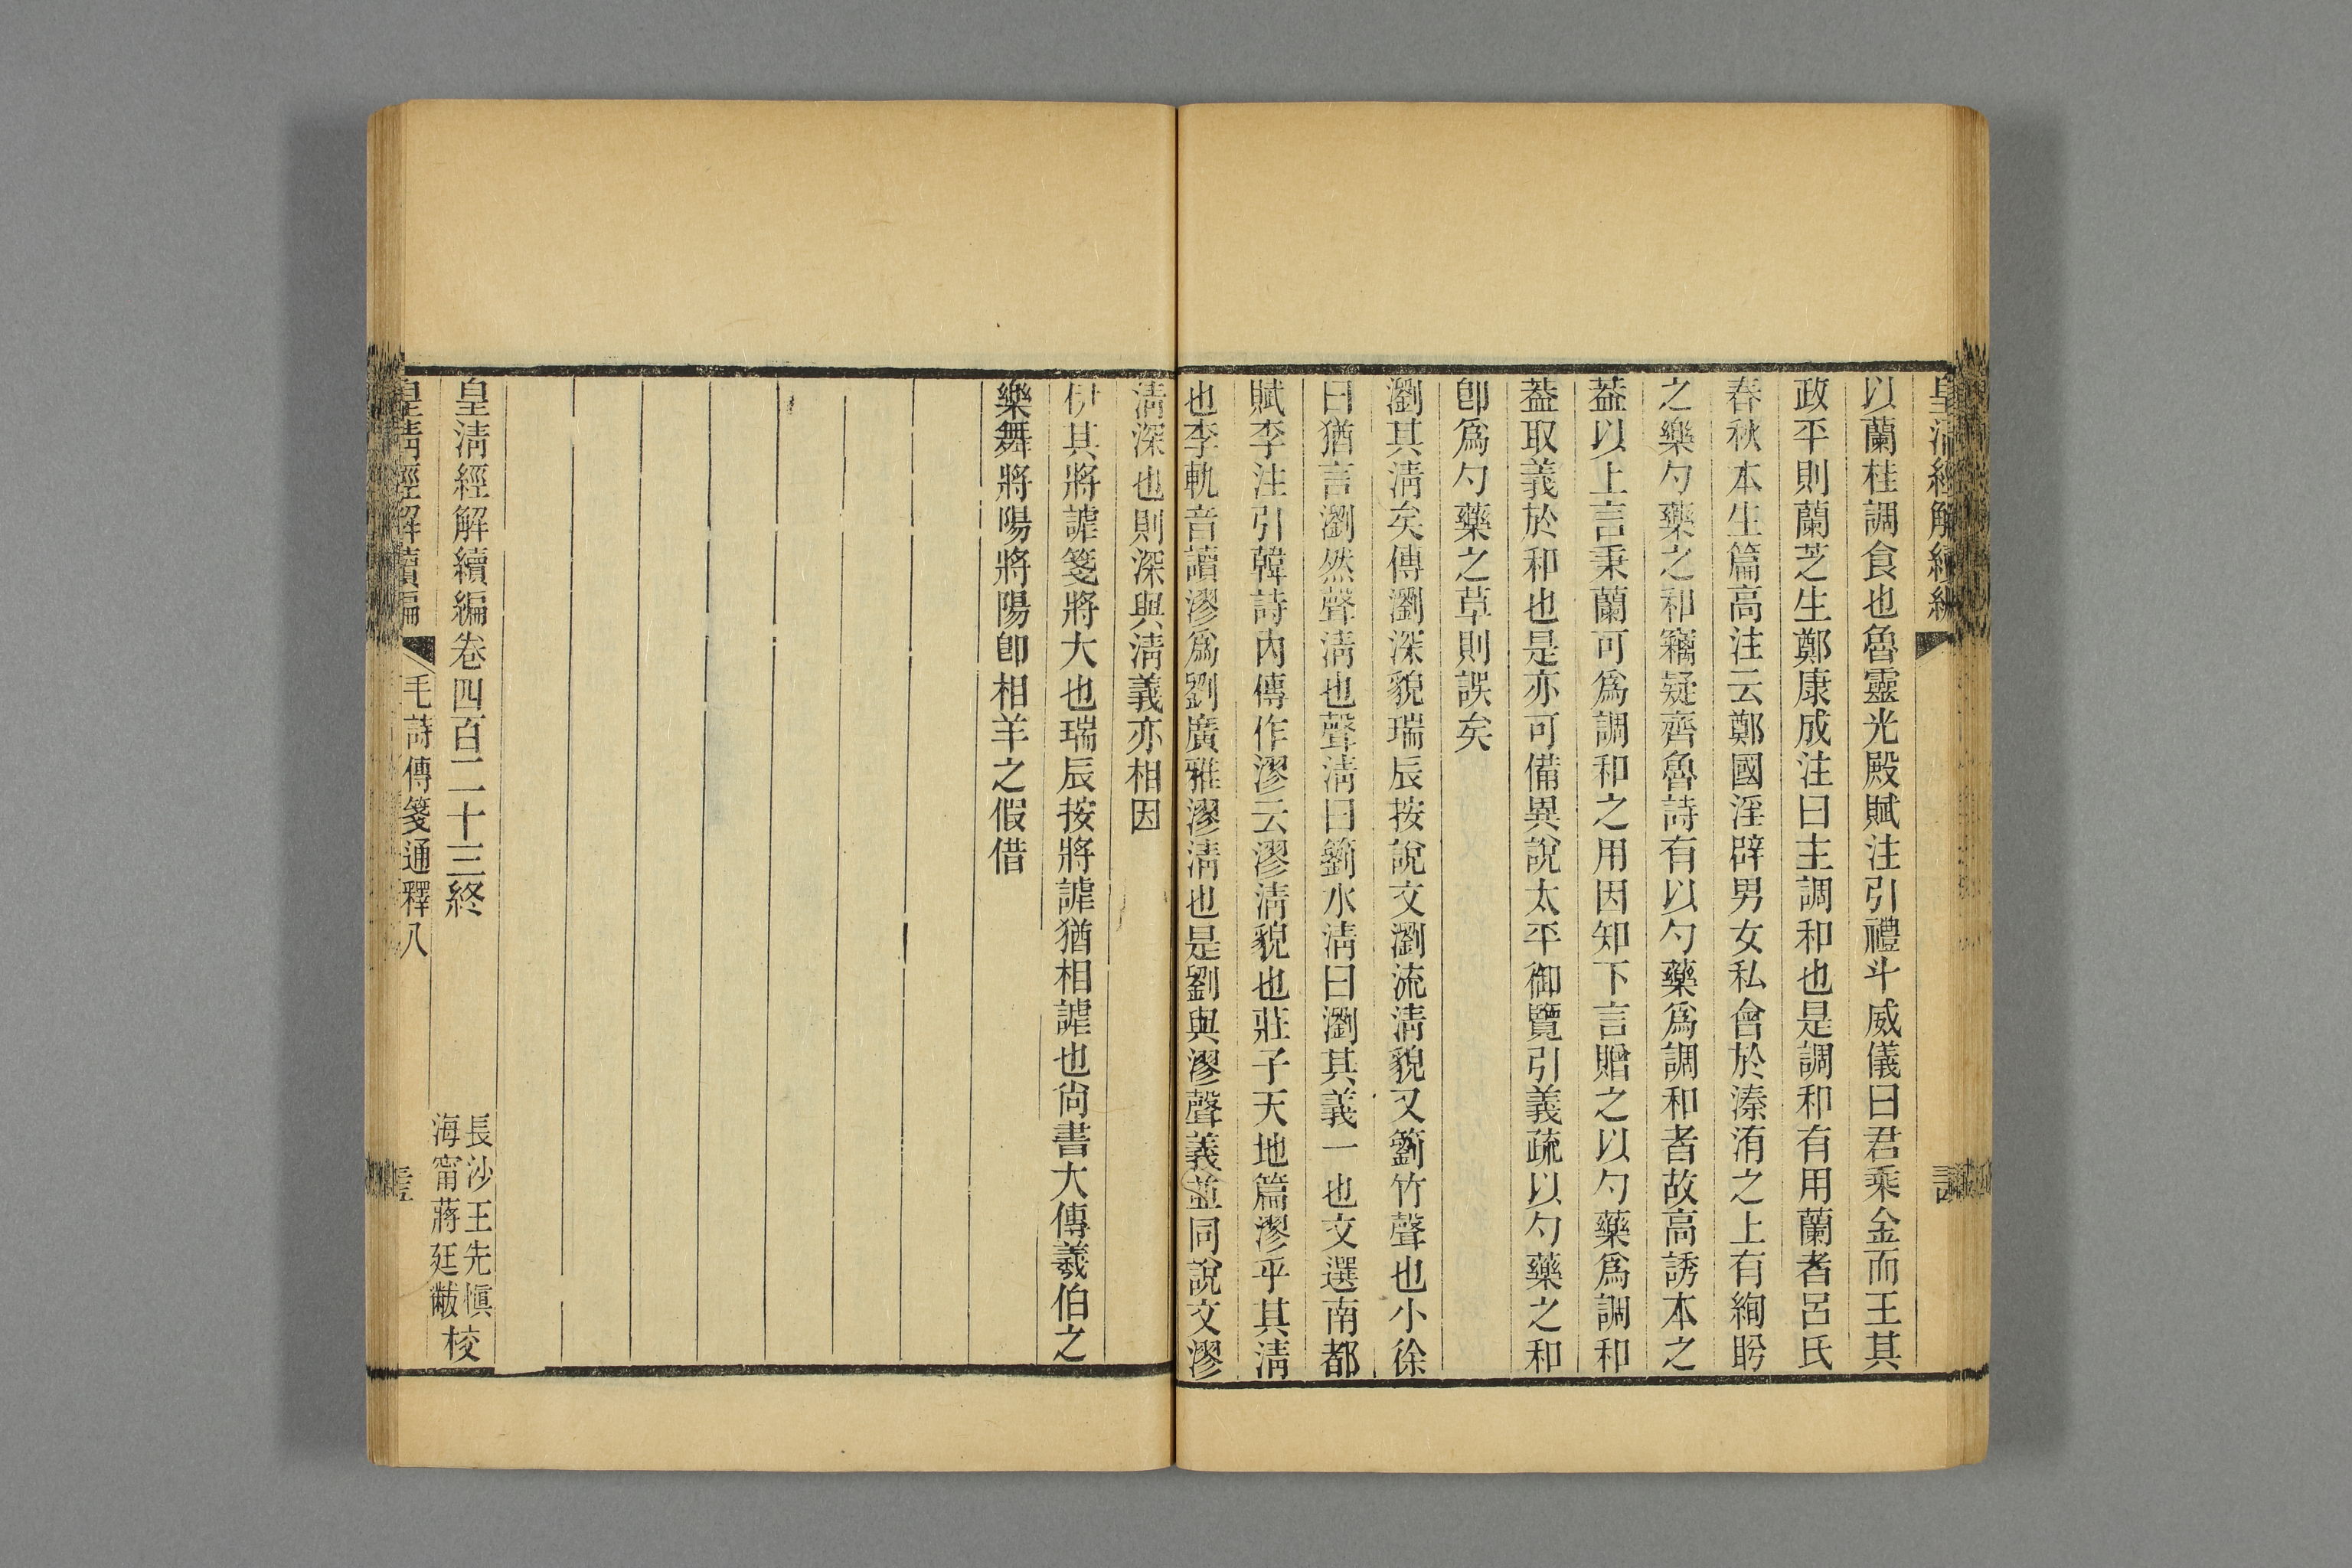 皇清經解續編
以蘭桂調食也魯靈光殿賦注引禮斗威儀曰君乘金而王其
政平則蘭芝生鄭康成注曰主調和也是調和有用蘭者呂氏
春秋本生篇高注云鄭國淫辟男女私會於溱洧之上有絢盻
之樂勺藥之和竊疑齊魯詩有以勺藥爲調和者故高誘本之
葢以上言秉蘭可爲調和之用因知下言贈之以勺藥爲調和
葢取義於和也是亦可備異說太平御覽引義疏以勺藥之和
卽爲勺藥之草則誤矣
瀏其淸矣傳瀏深貌瑞辰按說文瀏流淸貌又籔竹聲也小徐
曰猶言瀏然聲淸也聲淸曰籔水淸曰瀏其義一也文選南都
賦李注引韓詩內傳作漻云漻淸貌也莊子天地篇漻乎其淸
也李軌音讀漻爲劉廣雅漻淸也是劉與漻聲義並同說文漻
淸深也則深與淸義亦相因
伊其將謔箋將大也瑞辰按將謔猶相謔也尙書大傳羲伯之
樂舞將陽將陽卽相羊之假借
皇淸經解續編卷四百二十三終
長沙王先愼
海甯蔣廷黻
校
皇淸經解續編
毛詩傳箋通釋八